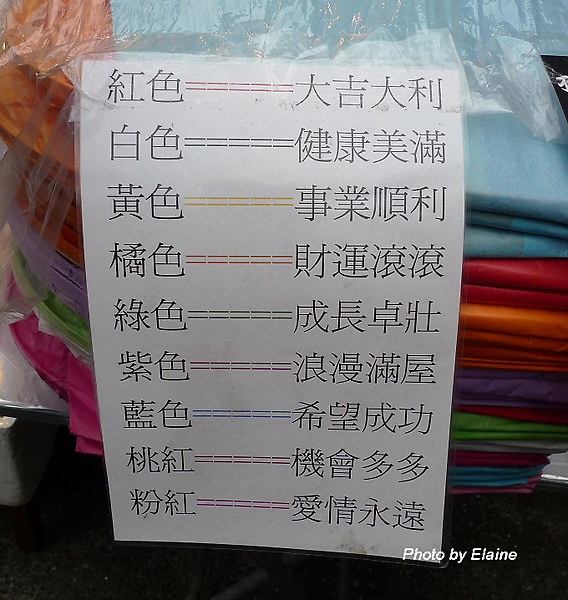 紅色=====大吉大利
白色=====健康美滿
黃色=====事業順利
橘色=====財運滾滾
綠色=====成長卓壯
紫色=====浪漫滿屋
藍色=====希望成功
桃紅=====機會多多
粉紅=====愛情永遠
Photo by Elaine